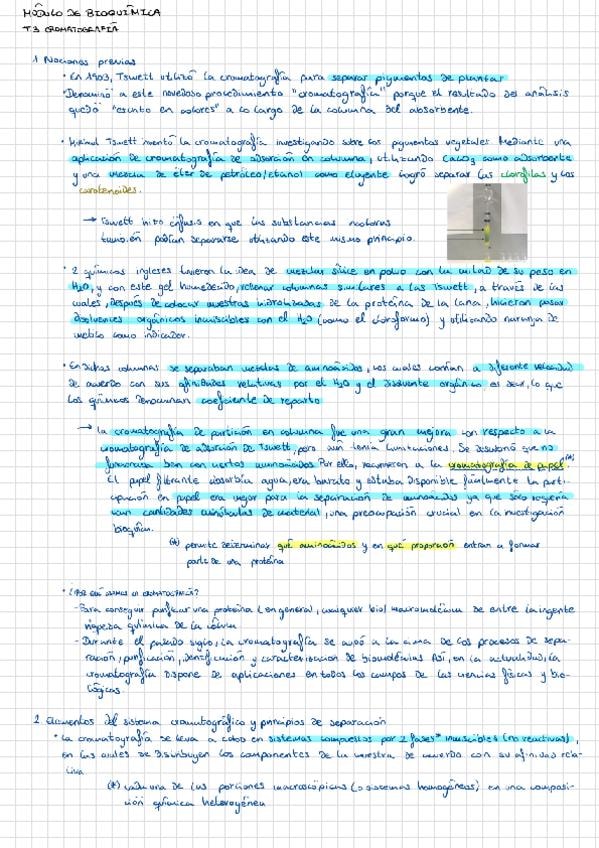 MÓDULO DE BIOQUÍMICA
T.3 CROMATOGRAFÍA
1 Nociones previas
• En 1903, Tswett utilizó la cromatografía para separar pigmentos de plantas
Denominó a este novedoso procedimiento "cromatografía" porque el resultado del análisis
quedó "escrito en colores" a lo largo de la columna del absorbente.
• Tswett inventó la cromatografía investigando sobre los pigmentos vegetales Mediante una
aplicación de cromatografía de adsorción en columna, utilizando CaCO3 como adsorbente
y una mezcla de éter de petróleo/etanol como eluyente logró separar las clorofilas y los
carotenoides.
→ Tswett hizo énfasis en que las substancias incoloras
también podían separarse utilizando este mismo principio.
• 2 químicos ingleses tuvieron la idea de mezclar sílice en polvo con la mitad de su peso en
H2O, y con este gel humedecido, rellenar columnas similares a las Tswett, a través de las
cuales, después de colocar muestras hidrolizadas de la proteína de la lana, hicieron pasar
disolventes orgánicos inmiscibles con el H2O (como el cloroformo) y utilizando naranja de
metilo como indicador.
• En dichas columnas se separaban mezclas de aminoácidos, los cuales corrían a diferente velocidad
de acuerdo con sus afinidades relativas por el H2O y el disolvente orgánico, es decir, lo que
los químicos denominan coeficiente de reparto
→ La cromatografía de partición en columna fue una gran mejora con respecto a la
cromatografía de adsorción de Tswett, pero aún tenía limitaciones. Se descubrió que no
funcionaba bien con ciertos aminoácidos Por ello, recurrieron a la cromatografía de papel.(*)
El papel filtrante absorbía agua, era barato y estaba disponible fácilmente La parti-
cipación en papel era mejor para la separación de aminoácidos ya que sólo requería
cantidades minúsculas de material, una preocupación crucial en la investigación
bioquím.
(*) permite determinar qué aminoácidos y en qué proporción entran a formar
parte de una proteína
• ¿POR QUÉ CROMATOGRAFÍA?
- Para conseguir purificar una proteína (en general, cualquier biomacromolécula de entre la ingente
riqueza química de la célula
- Durante el pasado siglo, la cromatografía se aupó a la cima de los procesos de sepa-
ración, purificación, identificación y caracterización de biomoléculas Así, en la actualidad, la
cromatografía dispone de aplicaciones en todos los campos de las ciencias físicas y bio-
lógicas.
2 Elementos del sistema cromatográfico y principios de separación
• La cromatografía se lleva a cabo en sistemas compuestos por 2 fases* inmiscibles (no reactivas),
en las cuales se distribuyen los componentes de la muestra de acuerdo con su afinidad rela-
tiva
(*) cada una de las porciones macroscópicas (o sistemas homogéneos) en una composi-
ción química heterogénea